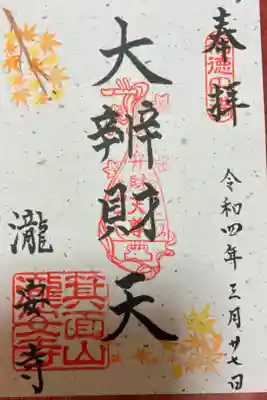 奉拝
令和四年三月廿七日
大辨財天
瀧安寺
箕面山
瀧安寺